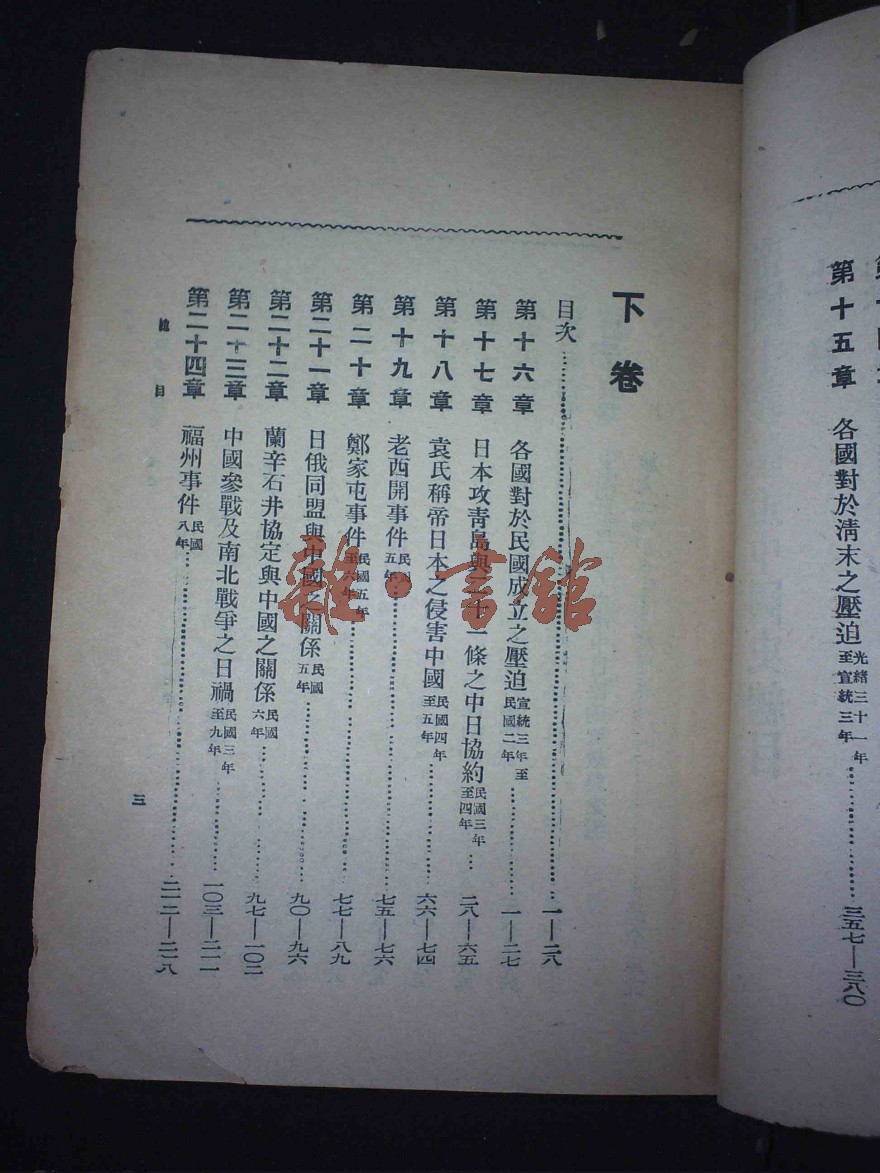 第十五章 各國對於清末之壓迫 光緒三十一年至宣統三年……三五七—三八〇
下卷
目次……一—二八
第十六章 各國對於民國成立之壓迫 宣統三年至民國二年……一—二七
第十七章 日本攻青島與二十一條之中日協約 民國三年至四年…二八—六五
第十八章 袁氏稱帝日本之侵害中國 民國四年至五年……六六—七四
第十九章 老西開事件 民國五年……七五—七六
第二十章 鄭家屯事件 民國五年至六年……七七—八九
第二十一章 日俄同盟與中國之關係 民國五年……九〇—九六
第二十二章 蘭辛石井協定與中國之關係 民國六年……九七—一〇二
第二十三章 中國參戰及南北戰爭之日禍 民國三年至九年……一〇三—二一一
第二十四章 福州事件 民國八年……二一二—二一八
總目
三
雜·書館